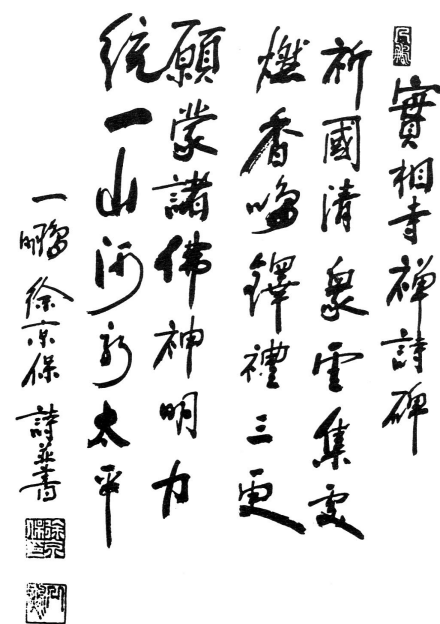 實相寺禅詩碑
祈國清衆雲集處
燃香鳴鐸禮三更
願蒙諸佛神明力
統一山河新太平
一鵬 徐京保 詩並書